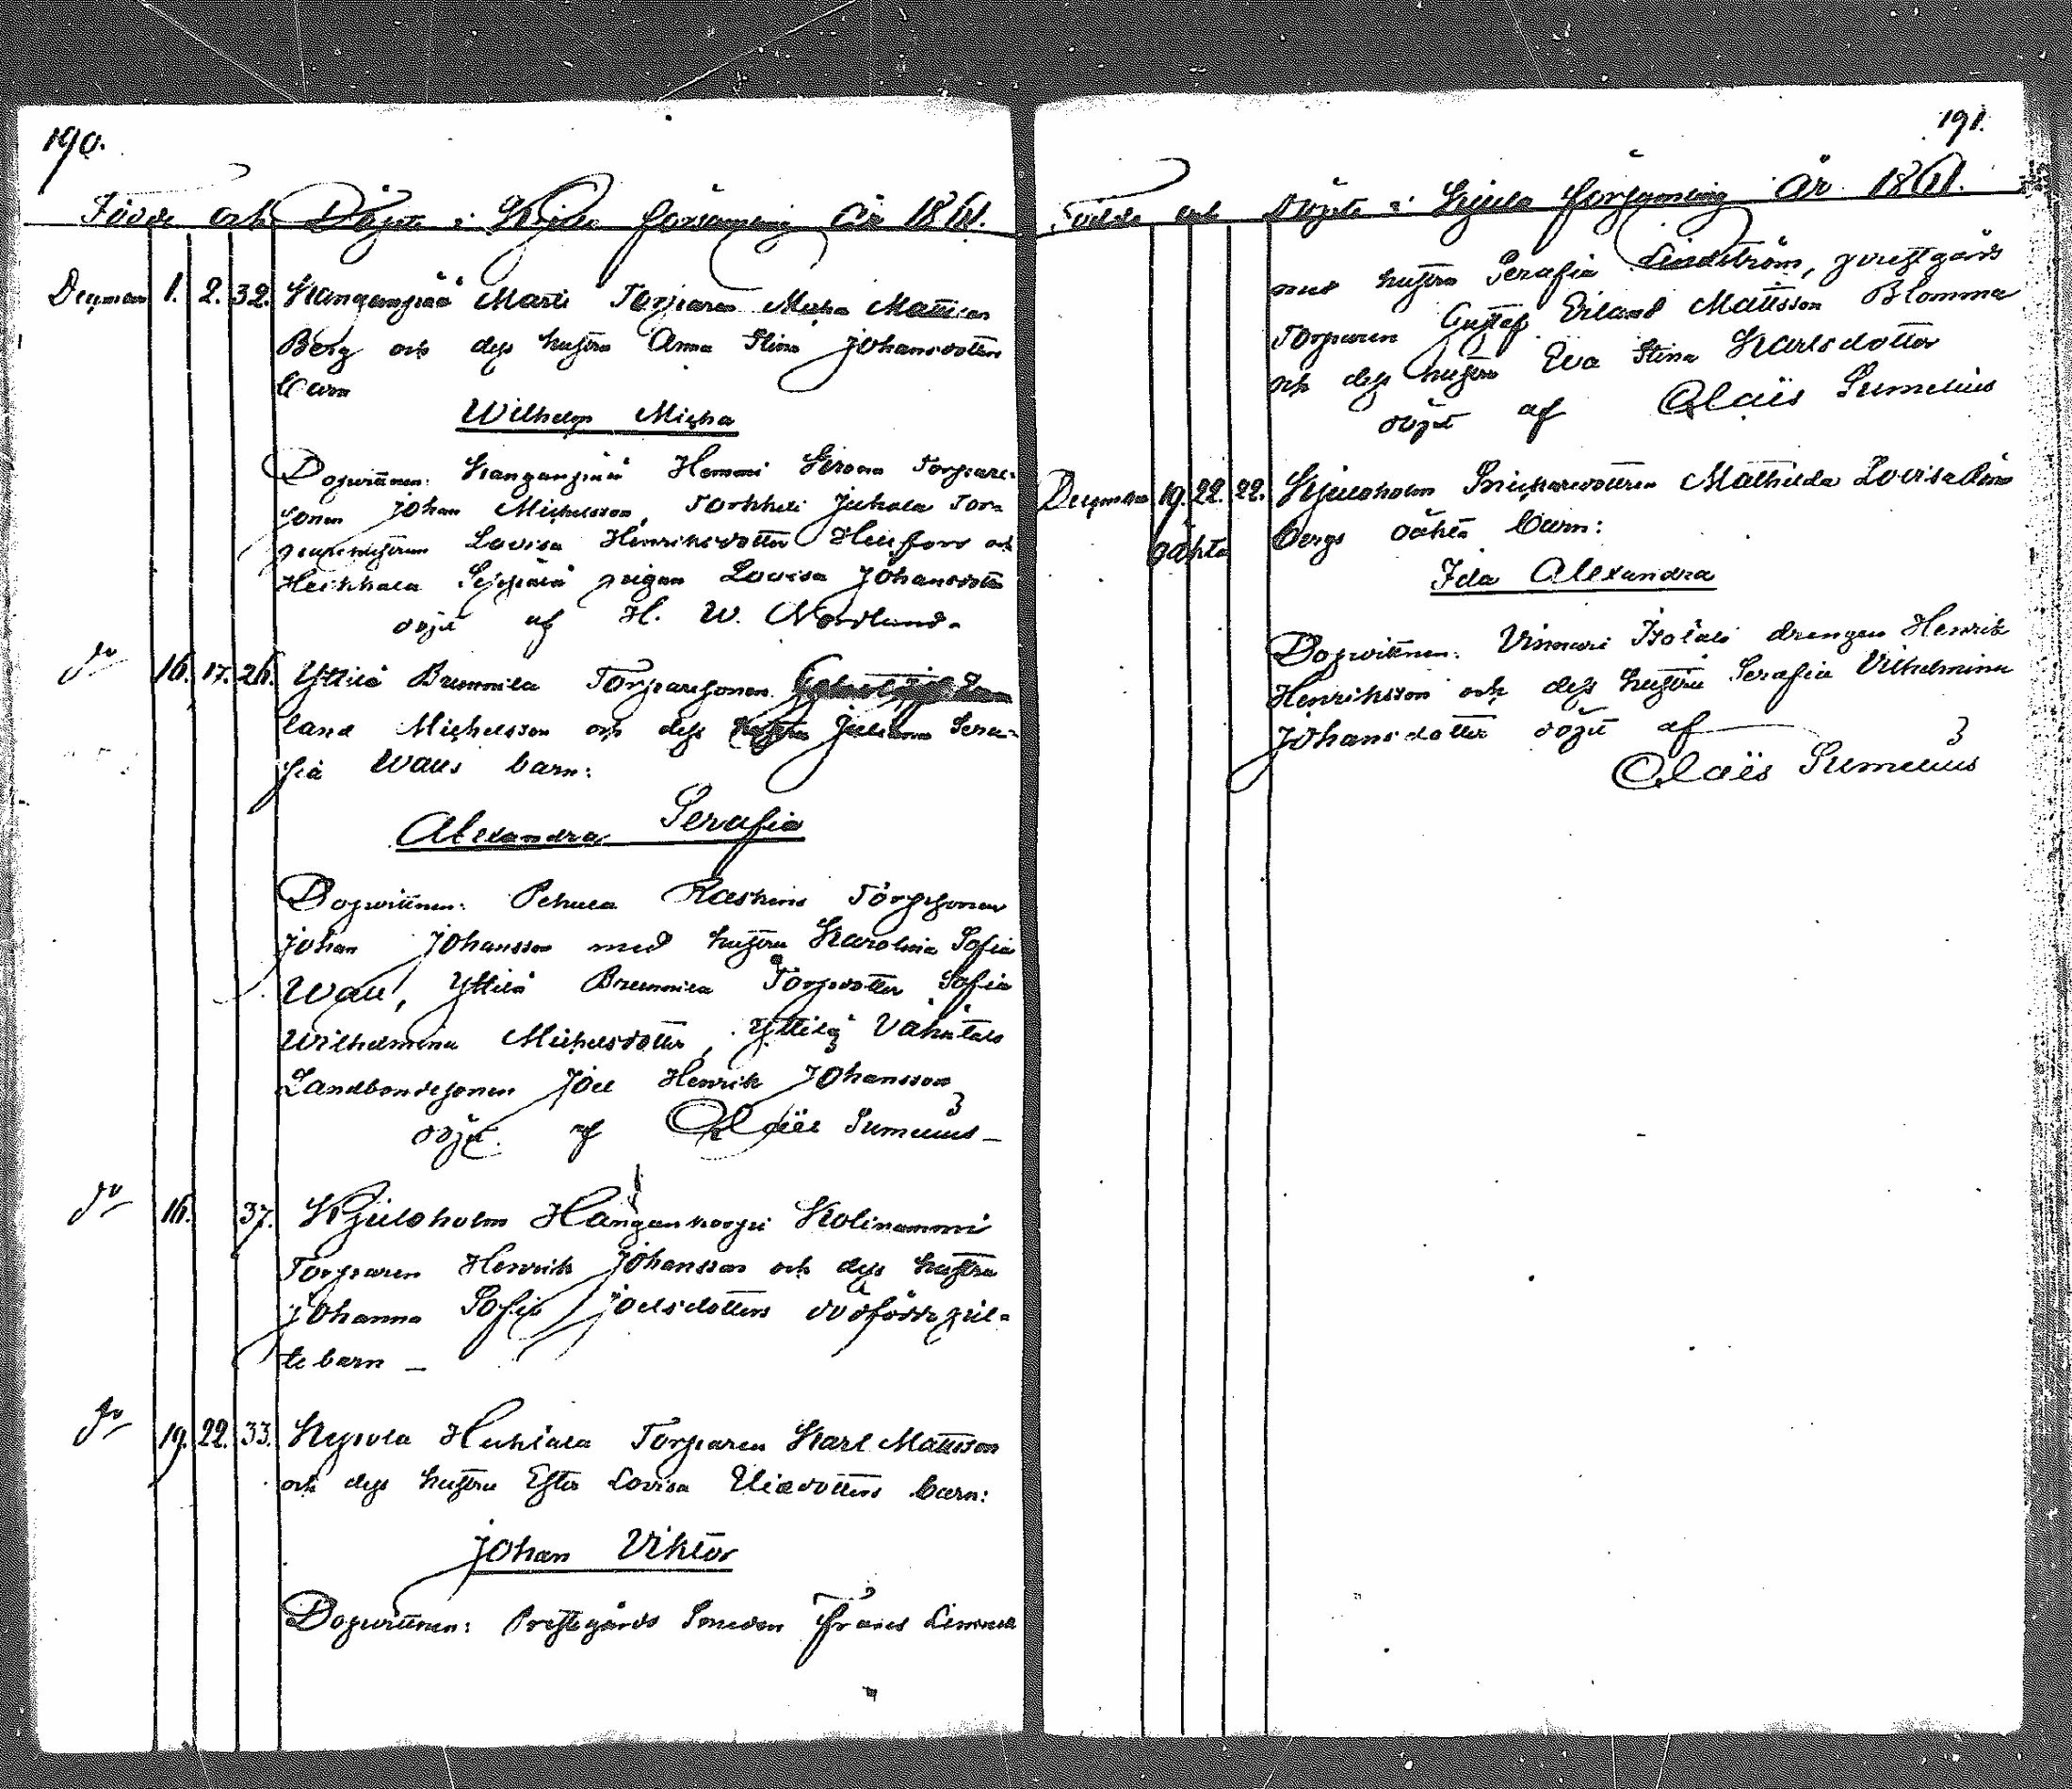 190.
Födde och Döpte i Kjulo församling År 1861.
December 1. 2. 32. Kanganpää Marti Torparen Micha Mattsson
Berg och dess hustru Anna Stina Johansdotters
barn
Wilhelm Micha
Dopvittnen: Kanganpää Hemmi Torpare-
sonen Johan Michelsson, Torkkeli Juhala Tor-
pare hustrun Lovisa Henriksdotter Helfors och
Heikkala Seppälä pigan Lovisa Johansdotter
döpt af H. W. Nordlund.
do 16. 17. 26. Yttilä Brunnila Torparesonen
land Michelsson och dess hustru Juliana Sera-
fia Walls barn:
Alexandra Serafia
Dopvittnen: Pehula Raskins Torpsonen
Johan Johansson med hustru Karolina Sofia
Wall, Yttilä Brunnila Torpdotter Sofia
Wilhelmina Michelsdotter, Yttilä Vähätalo
Landbondesonen Joel Henrik Johansson
döpt af Claës Sumelius
do 16. 37. Kjuloholm Hangankorpi Kolinammi
Torparen Henrik Johansson och dess hustru
Johanna Sofia Joelsdotters dödfödde pil-
te barn
do 19. 22. 33. Kepola Huhtala Torparen Karl Mattsson
och dess hustru Ester Lovisa Eliædotters barn:
Johan Viktor
Dopvittnen: Prestgårds Smeden Frans
191.
Födde och Döpte i Kjulo församling År 1861.
med hustru Serafia Lindström, prestgårds
Torparen Gustaf Erland Mattsson Blomma
och dess hustru Eva Stina Karlsdotter
döpt af Claës Sumelius
December 19. 22. 22. Kjuloholm Snickaredottren Mathilda Lovisa
oäkta bergs oäkta barn:
Ida Alexandra
Dopvittnen: Vinnari Isotalo drengen Henrik
Henriksson och dess hustru Serafia Vilhelmina
Johansdotter döpt af
Claës Sumelius